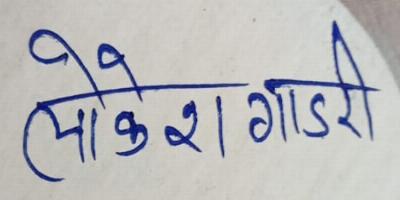 लोकेश गाडरी